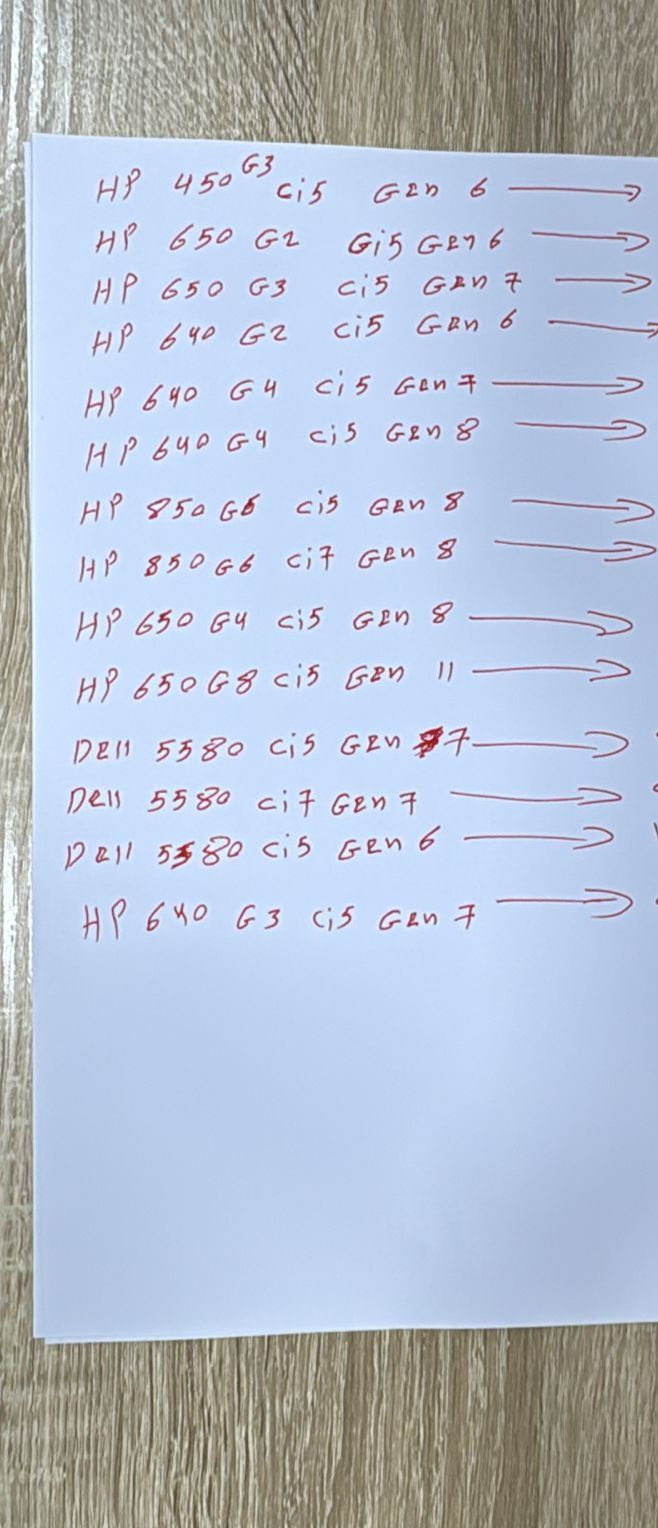 HP 450 G3 Ci5 Gen 6 →
HP 650 G2 Gi5 Gen 6 →
HP 650 G3 Ci5 Gen 7 →
HP 640 G2 Ci5 Gen 6 →
HP 640 G4 Ci5 Gen 7 →
HP 640 G4 Ci5 Gen 8 →
HP 850 G5 Ci5 Gen 8 →
HP 850 G6 Ci7 Gen 8 →
HP 650 G4 Ci5 Gen 8 →
HP 650 G8 Ci5 Gen 11 →
Dell 5580 Ci5 Gen 7 →
Dell 5580 Ci7 Gen 7 →
Dell 5580 Ci5 Gen 6 →
HP 640 G3 Ci5 Gen 7 →